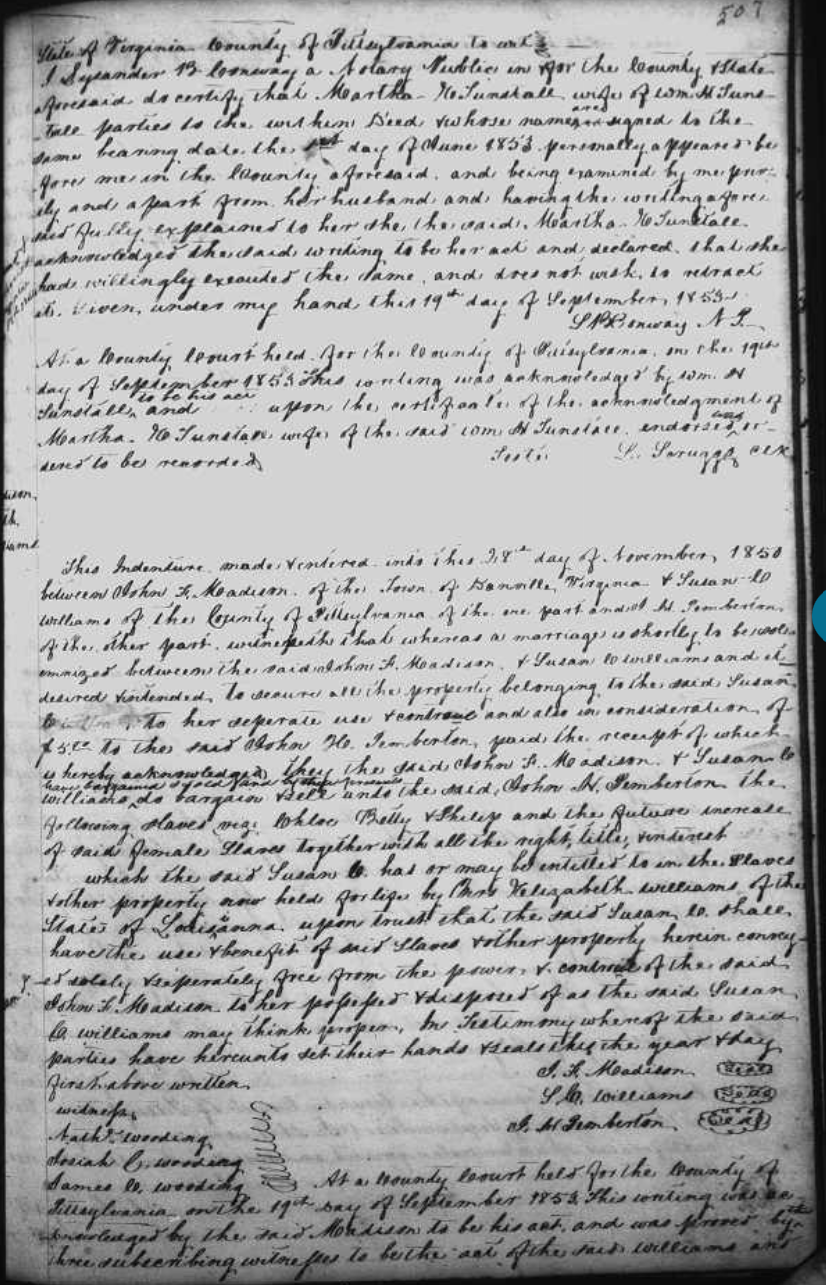 507
State of Virginia County of Pittsylvania to wit
I Lysander B Conway a Notary Public in & for the County & State
aforesaid do certify that Martha H Tunstall wife of Wm H Tuns-
tall parties to the within Deed & whose names are signed to the
same bearing date the 1st day of June 1853 personally appeared be
fore me in the County aforesaid, and being examined by me priv-
ily and apart from her husband and having the writing afore
said fully explained to her she the said Martha H Tunstall
acknowledged the said writing to be her act and declared that she
had willingly executed the same, and does not wish to retract
it. Given under my hand this 19th day of September, 1853
L B Conway N P
At a County Court held for the County of Pittsylvania on the 19th
day of September 1853 This writing was acknowledged by Wm H
Tunstall to be his act and upon the certificate of the acknowledgment of
Martha H Tunstall wife of the said Wm H Tunstall endorsed and or-
dered to be recorded
Teste L. Scruggs Clk
This Indenture made & entered into this 28th day of November, 1850
between John F. Madison of the Town of Danville, Virginia & Susan C
Williams of the County of Pittsylvania of the one part and J H Pemberton
of the other part witnesseth that whereas a marriage is shortly to be sole
emnized between the said John F. Madison & Susan C Williams and it
desired & intended to secure all the property belonging to the said Susan
C to her seperate use & controul and also in consideration of
$5.00 to the said John H. Pemberton paid the receipt of which
is hereby acknowledged they the said John F. Madison & Susan C
have bargained & sold and by these presents
Williams do bargain & sell unto the said John H. Pemberton the
following slaves viz: Chloe Betty & Philip and the future increase
of said female Slaves together with all the right, title, & interest
which the said Susan C. has or may be entitled to in the Slaves
& other property now held for life by Mrs Elizabeth Williams of the
State of Louisanna upon trust that the said Susan C. shall
have the use & benefit of said Slaves & other property herein convey-
ed solely & seperately free from the power & controul of the said
John F. Madison to her possessed & disposed of as the said Susan
C. Williams may think proper, In Testimony whereof the said
parties have hereunto set their hands & seals this the year & day
first above written
J. F. Madison Seal
S. C. Williams Seal
J. H Pemberton Seal
witness,
Nathl. Wooding
Josiah C. Wooding
James C. Wooding
At a County Court held for the County of
Pittsylvania on the 19th Day of September 1853 This writing was ac-
knowledged by the said Madison to be his act, and was proved by the
three subscribing witnesses to be the act of the said Williams and